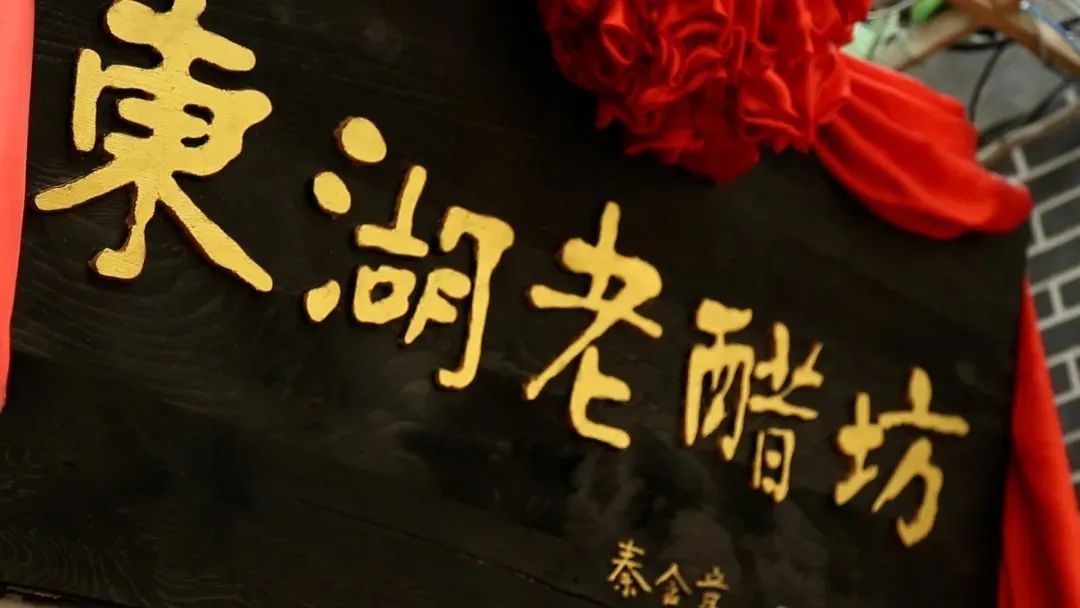 東湖老醋坊
秦含章